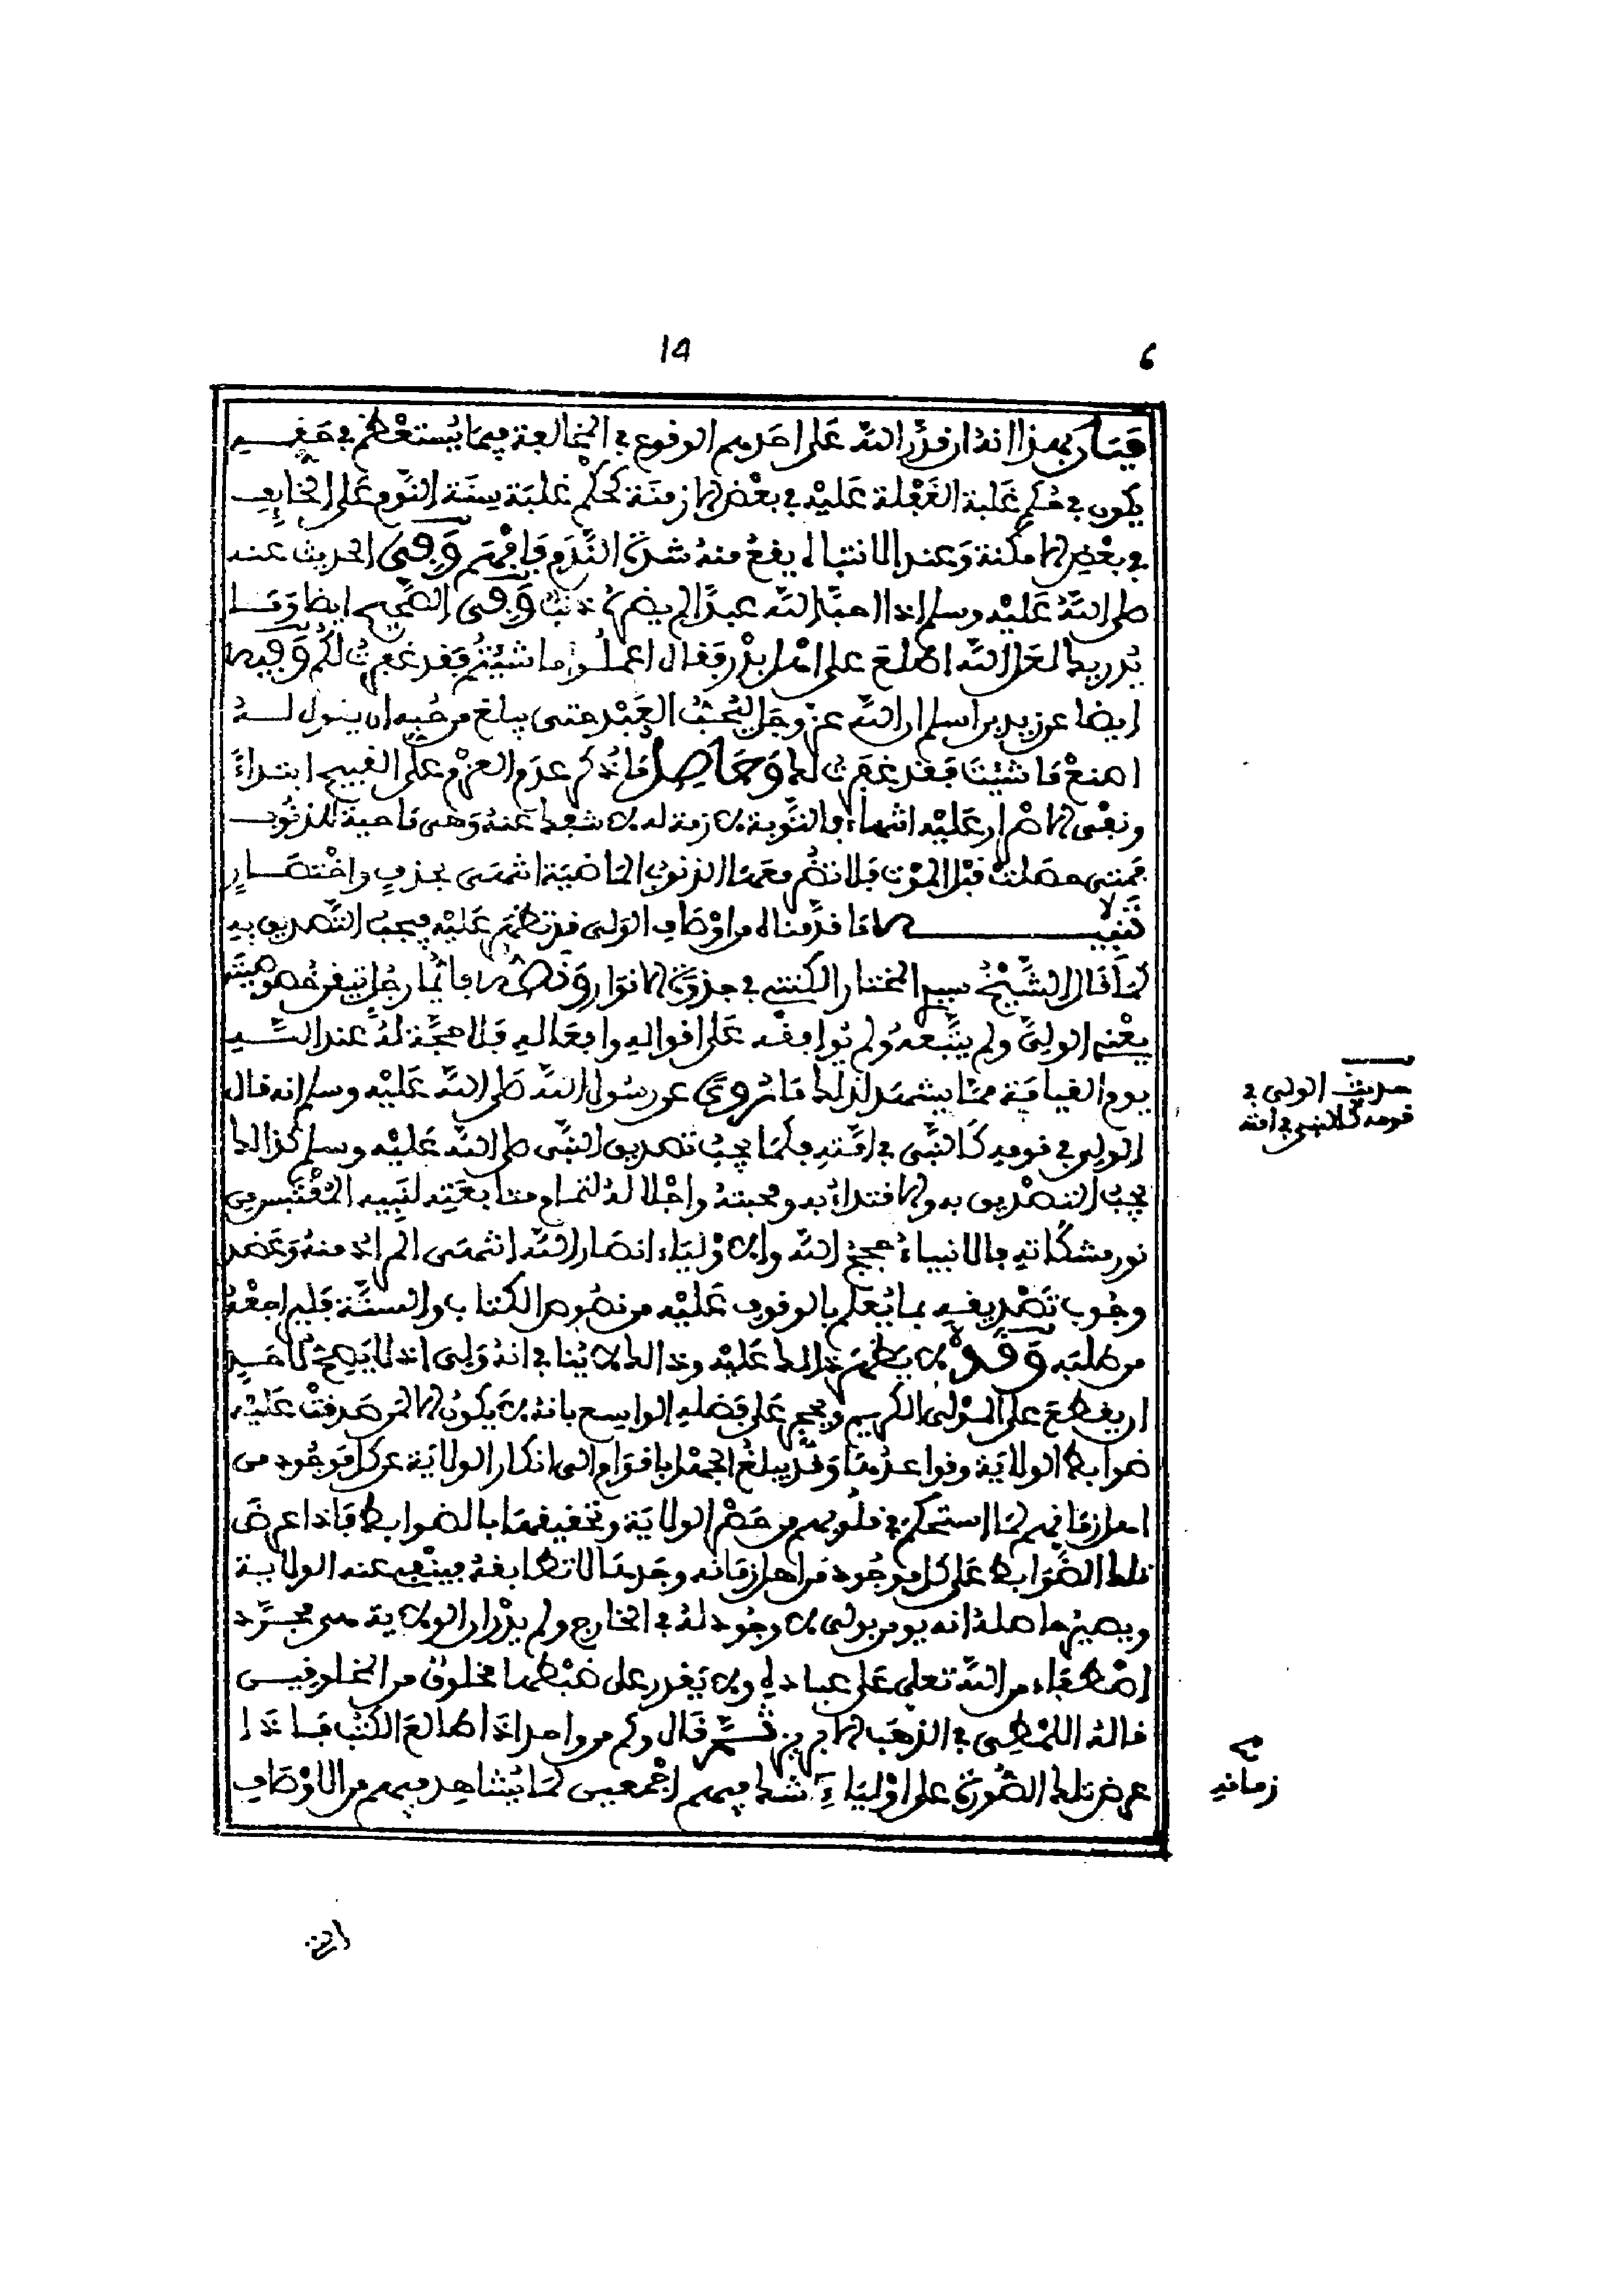 14
6
فبان بهذا انه ان قدر الله على احدهم الوقوع في المخالفة فيما يُستعظم في حقه
يكون في حكم غلبة الغفلة عليه في بعض الازمنة كحكم غلبة سِنَة النوم على الخايف
في بعض الامكنة وعند الانتباه يقع منه شدة الندم فافهم وفى الحديث عنه
صلى الله عليه وسلم اذا احب الله عبدا لم يضره ذنب وفى الصحيح ايضا وما
يدريك لعل الله اطلع على اهل بدر فقال اعملوا ما شيتم فقد غفرت لكم وفيه
ايضا عن زيد بن اسلم ان الله عز وجل ليحب العبد حتى يبلغ من حبه ان يقول له
اصنع ما شيت فقد غفرت لك وحاصل ما ذكر عدم العزم على القبيح ابتداء
ونفى الاصرار عليه انتهاء فالتوبة لازمة له لا تنفك عنه وهى ماحية للذنوب
فمتى حصلت قبل الموت فلا تضر معها الذنوب الماضية انتهى بحذف واختصار
تنبيه ما قدمناه من اوصاف الولى من تظهر عليه فيجب التصديق به
كما قال الشيخ سيد المختار الكنتي في جذوة الانوار ونصه فايما رجل تيقن خصوصية
يعنى الولي ولم يتبعه ولم يوافقه على اقواله وافعاله فلا حجة له عند الله
يوم القيامة مما يشهد لذلك ما رُوي عن رسول الله صلى الله عليه وسلم انه قال
الولي في قومه كالنبى في امته فكما يجب تصديق النبى صلى الله عليه وسلم كذالك
يجب التصديق به والاقتداء به ومحبته واجلاله لتمام متابعته لنبيه المقتبس من
نور مشكاته فالانبياء حجج الله والاولياء انصار الله انتهى المراد منه وعضد
وجوب تصديقه بما يُعلم بالوقوف عليه من نصوص الكتاب والسنة فليراجعه
من طلبه وقد لا يظهر ذالك عليه وذالك لا ينافي انه ولى اذ لا يصح لاحد
ان يقطع على المولى الكريم ويحجر على فضله الواسع بانه لا يكون الا لمن صدقت عليه
ضوابط الولاية وقواعدها وقد يبلغ الجهل باقوام الى انكار الولاية عن كل موجود من
اهل زمانهم لما استحكم في قلوبهم من حصر الولاية وتحقيقها بالضوابط فاذا عرض
تلك الضوابط على كل موجود من اهل زمانه وجدها لا تطابقه فينفي عنه الولاية
ويصير حاصله انه يومن بولى لا وجود له في الخارج ولم يدر ان الولاية هى مجرد
اصطفاء من الله تعلى على عباده ولا يقدر على ضبطها مخلوق من المخلوقين
قاله اللمطى في الذهب الابريز ثم قال وكم من واحد اذا طالع الكتب فاذا
عرض تلك الصورة على اولياء شك فيهم اجمعين لما يُشاهد فيهم من الاوصاف
حديث الولى في
قومه كالنبى في امته
زمانه